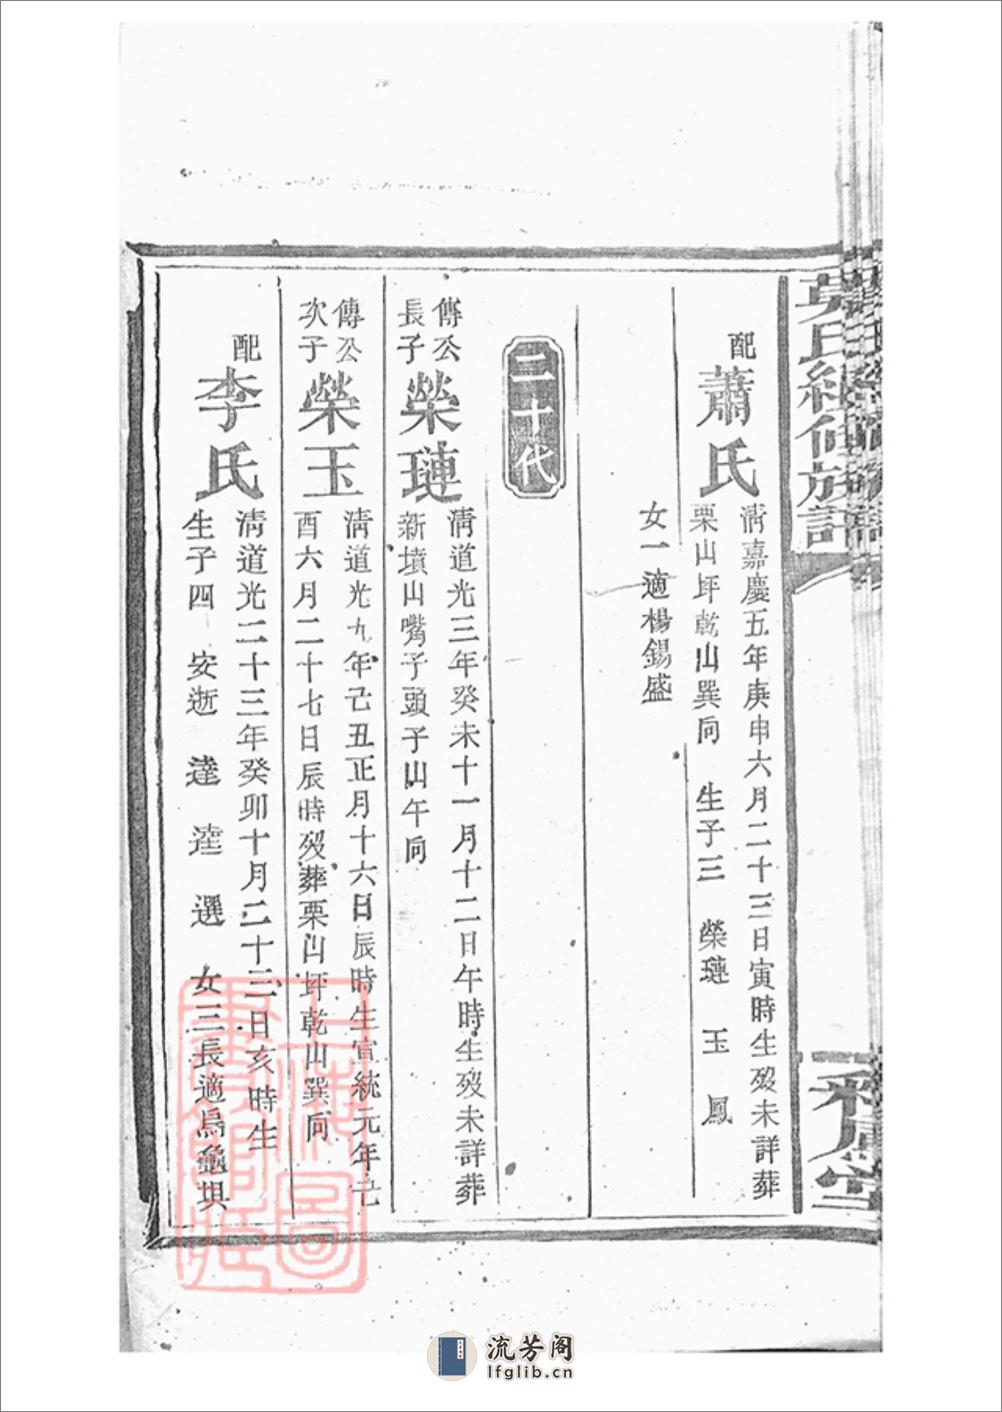 氏續修族譜
配蕭氏
清嘉慶五年庚申六月二十三日寅時生歿未詳葬
栗山坪乾山巽向 生子三 榮璉 玉 鳳
女一適楊錫盛
二十代
傳公長子榮璉
清道光三年癸未十一月十二日午時生歿未詳葬
新墳山嘴子頭子山午向
傳公次子榮玉
清道光九年己丑正月十六日辰時生宣統元年己
酉六月二十七日辰時歿葬栗山坪乾山巽向
配李氏
清道光二十三年癸卯十月二十三日亥時生
生子四 安逝 達 逵 選 女三長適烏龜垻
上海圖書館藏
流芳阁
lfglib.cn